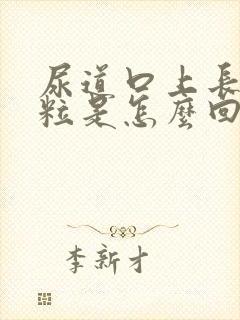 尿道口上長
粒是怎麼回
李新才